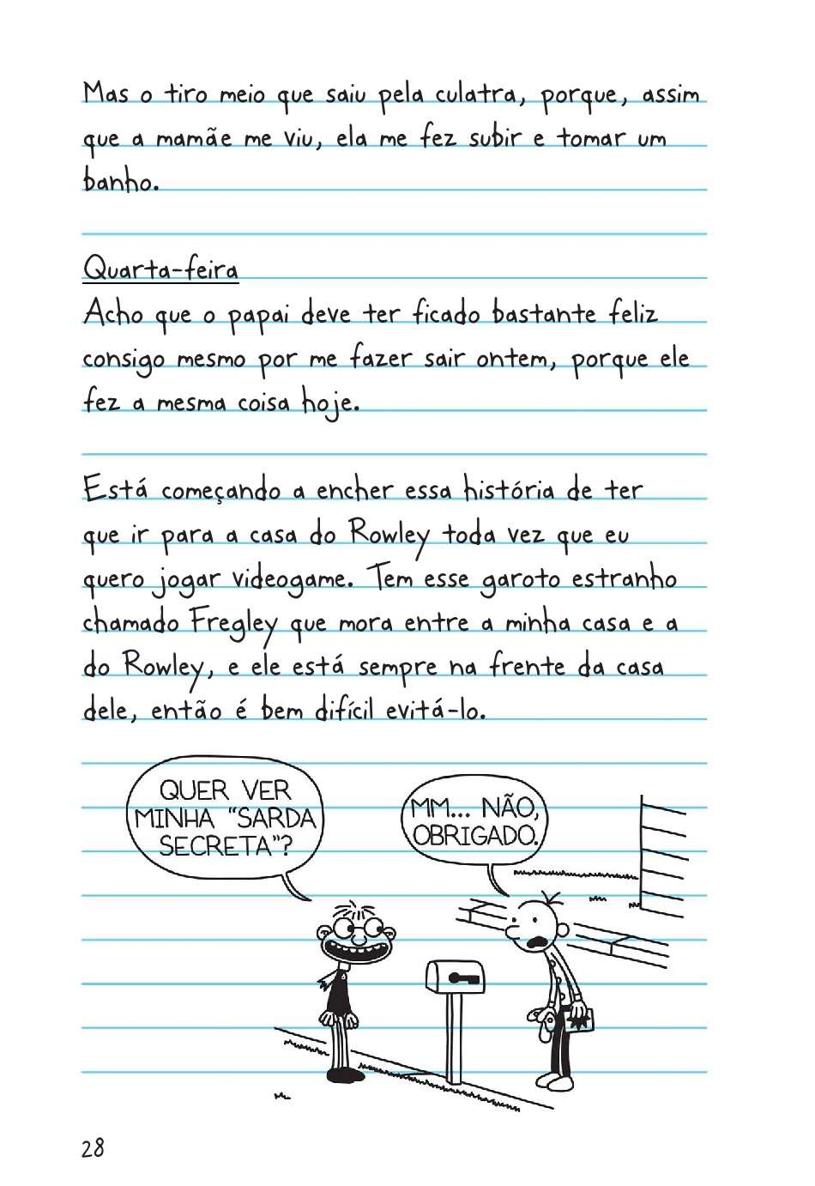 Mas o tiro meio que saiu pela culatra, porque, assim
que a mamãe me viu, ela me fez subir e tomar um
banho.
Quarta-feira
Acho que o papai deve ter ficado bastante feliz
consigo mesmo por me fazer sair ontem, porque ele
fez a mesma coisa hoje.
Está começando a encher essa história de ter
que ir para a casa do Rowley toda vez que eu
quero jogar videogame. Tem esse garoto estranho
chamado Fregley que mora entre a minha casa e a
do Rowley, e ele está sempre na frente da casa
dele, então é bem difícil evitá-lo.
QUER VER
MINHA "SARDA
SECRETA"?
MM... NÃO,
OBRIGADO.
28